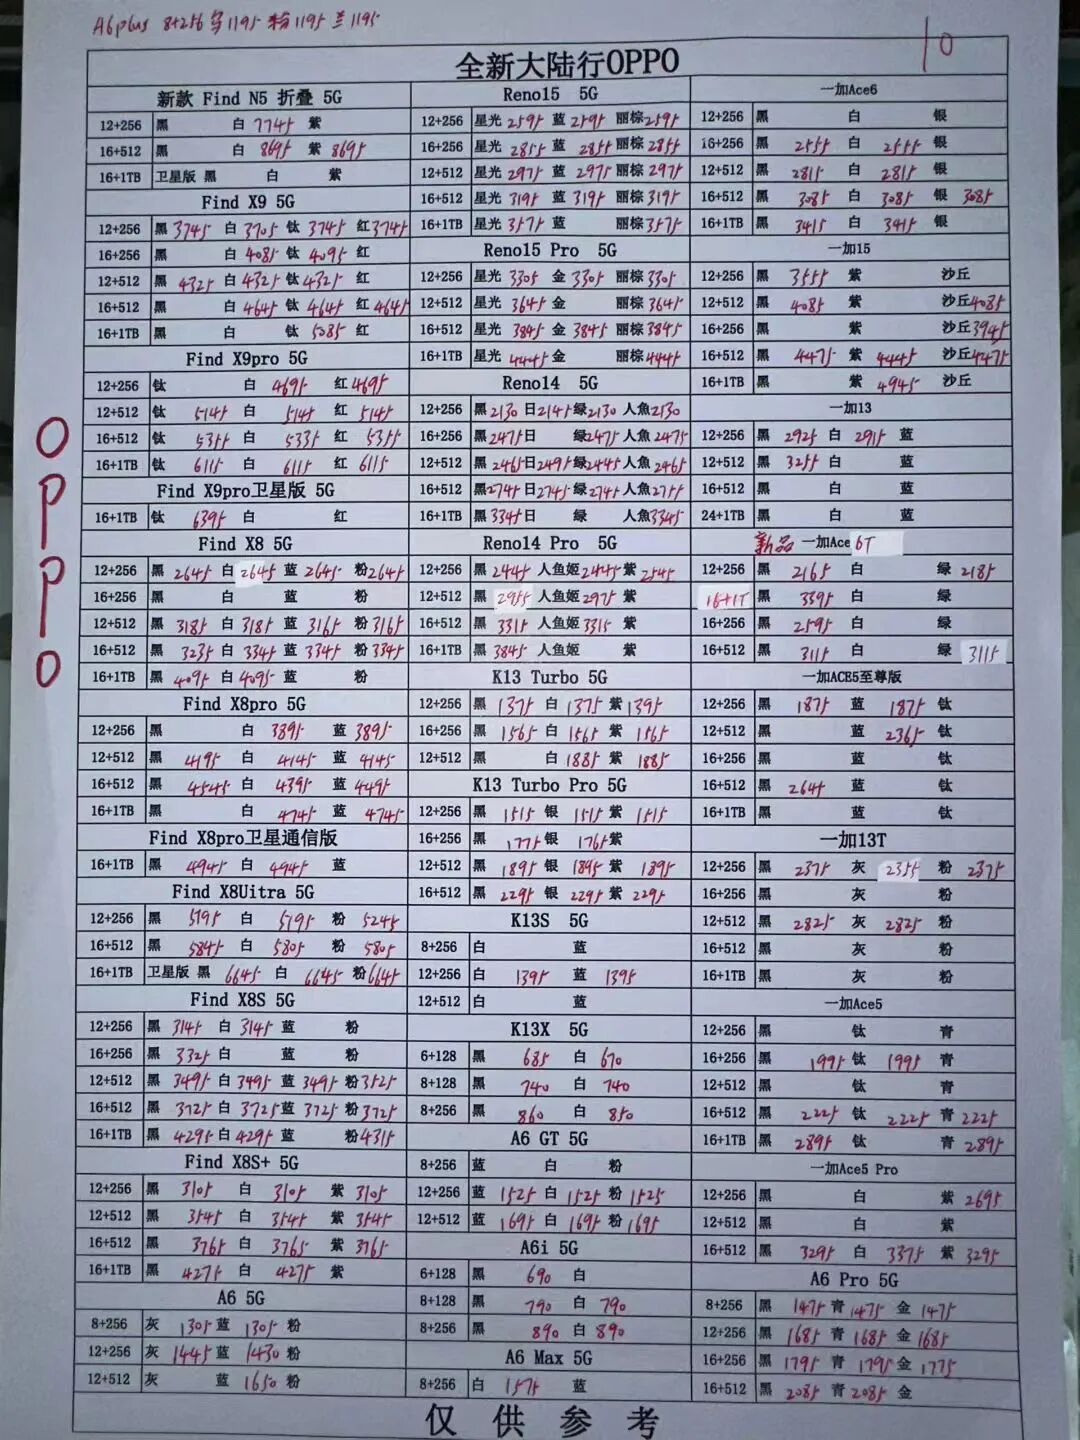 A6plus 8+256 1195 粉1195 兰1195
10
全新大陆行OPPO
OPPO
新款 Find N5 折叠 5G
12+256 黑 白 7745 紫
16+512 黑 白 8695 紫 8695
16+1TB 卫星版 黑 白 紫
Find X9 5G
12+256 黑 3745 白 3705 钛 3745 红 3745
16+256 黑 白 4085 钛 4095 红
12+512 黑 4325 白 4325 钛 4325 红
16+512 黑 白 4645 钛 4645 红 4645
16+1TB 黑 白 钛 5085 红
Find X9pro 5G
12+256 钛 白 4695 红 4695
12+512 钛 5145 白 5145 红 5145
16+512 钛 5355 白 5335 红 5355
16+1TB 钛 6115 白 6115 红 6115
Find X9pro卫星版 5G
16+1TB 钛 6395 白 红
Find X8 5G
12+256 黑 2645 白 2645 蓝 2645 粉 2645
16+256 黑 白 蓝 粉
12+512 黑 3185 白 3185 蓝 3165 粉 3165
16+512 黑 3235 白 3345 蓝 3345 粉 3345
16+1TB 黑 4095 白 4095 蓝 粉
Find X8pro 5G
12+256 黑 白 3895 蓝 3895
12+512 黑 4195 白 4145 蓝 4145
16+512 黑 4545 白 4395 蓝 4495
16+1TB 黑 白 4745 蓝 4745
Find X8pro卫星通信版
16+1TB 黑 4945 白 4945 蓝
Find X8Uitra 5G
12+256 黑 5195 白 5195 粉 5245
16+512 黑 5845 白 5805 粉 5805
16+1TB 卫星版 黑 6645 白 6645 粉 6645
Find X8S 5G
12+256 黑 3145 白 3145 蓝 粉
16+256 黑 3325 白 蓝 粉
12+512 黑 3495 白 3495 蓝 3495 粉 3525
16+512 黑 3725 白 3725 蓝 3725 粉 3725
16+1TB 黑 4295 白 4295 蓝 粉 4315
Find X8S+ 5G
12+256 黑 3105 白 3105 紫 3105
12+512 黑 3545 白 3545 紫 3545
16+512 黑 3765 白 3765 紫 3765
16+1TB 黑 4275 白 4275 紫
A6 5G
8+256 灰 1305 蓝 1305 粉
12+256 灰 1445 蓝 1430 粉
12+512 灰 蓝 1650 粉
Reno15 5G
12+256 星光 2595 蓝 2595 丽棕 2595
16+256 星光 2855 蓝 2855 丽棕 2855
12+512 星光 2975 蓝 2975 丽棕 2975
16+512 星光 3195 蓝 3195 丽棕 3195
16+1TB 星光 3575 蓝 丽棕 3575
Reno15 Pro 5G
12+256 星光 3305 金 3305 丽棕 3305
12+512 星光 3645 金 丽棕 3645
16+512 星光 3845 金 3845 丽棕 3845
16+1TB 星光 4445 金 丽棕 4445
Reno14 5G
12+256 黑 2130 日 2145 绿 2130 人魚 2130
16+256 黑 2475 日 绿 2475 人魚 2475
12+512 黑 2465 日 2495 绿 2445 人魚 2465
16+512 黑 2745 日 2745 绿 2745 人魚 2755
16+1TB 黑 3345 日 绿 人魚 3345
Reno14 Pro 5G
12+256 黑 2445 人鱼姬 2445 紫 2545
12+512 黑 2955 人鱼姬 2975 紫
16+512 黑 3315 人鱼姬 3315 紫
16+1TB 黑 3845 人鱼姬 紫
K13 Turbo 5G
12+256 黑 1375 白 1375 紫 1395
16+256 黑 1565 白 1565 紫 1565
12+512 黑 白 1885 紫 1885
K13 Turbo Pro 5G
12+256 黑 1515 银 1515 紫 1515
16+256 黑 1775 银 1765 紫
12+512 黑 1895 银 1895 紫 1895
16+512 黑 2295 银 2295 紫 2295
K13S 5G
8+256 白 蓝
12+256 白 1395 蓝 1395
12+512 白 蓝
K13X 5G
6+128 黑 685 白 670
8+128 黑 740 白 740
8+256 黑 860 白 850
A6 GT 5G
8+256 蓝 白 粉
12+256 蓝 1525 白 1525 粉 1525
12+512 蓝 1695 白 1695 粉 1695
A6i 5G
6+128 黑 690 白
8+128 黑 790 白 790
8+256 黑 890 白 890
A6 Max 5G
8+256 白 1575 蓝
一加Ace6
12+256 黑 白 银
16+256 黑 2555 白 2555 银
12+512 黑 2815 白 2815 银
16+512 黑 3085 白 3085 银 3085
16+1TB 黑 3415 白 3415 银
一加15
12+256 黑 3555 紫 沙丘
12+512 黑 4085 紫 沙丘 4085
16+256 黑 紫 沙丘 3945
16+512 黑 4475 紫 4445 沙丘 4475
16+1TB 黑 紫 4945 沙丘
一加13
12+256 黑 2925 白 2915 蓝
12+512 黑 3255 白 蓝
16+512 黑 白 蓝
24+1TB 黑 白 蓝
新品 一加Ace 6T
12+256 黑 2165 白 绿 2185
16+1T 黑 3395 白 绿
16+256 黑 2595 白 绿
16+512 黑 3115 白 绿 3115
一加ACE5至尊版
12+256 黑 1875 蓝 1875 钛
12+512 黑 蓝 2365 钛
16+256 黑 蓝 钛
16+512 黑 2645 蓝 钛
16+1TB 黑 蓝 钛
一加13T
12+256 黑 2375 灰 2355 粉 2375
16+256 黑 灰 粉
12+512 黑 2825 灰 2825 粉
16+512 黑 灰 粉
16+1TB 黑 灰 粉
一加Ace5
12+256 黑 钛 青
16+256 黑 1995 钛 1995 青
12+512 黑 钛 青
16+512 黑 2225 钛 2225 青 2225
16+1TB 黑 2895 钛 青 2895
一加Ace5 Pro
12+256 黑 白 紫 2695
12+512 黑 白 紫
16+512 黑 3295 白 3375 紫 3295
A6 Pro 5G
8+256 黑 1475 青 1475 金 1475
12+256 黑 1685 青 1685 金 1685
16+256 黑 1795 青 1795 金 1775
16+512 黑 2085 青 2085 金
仅供参考